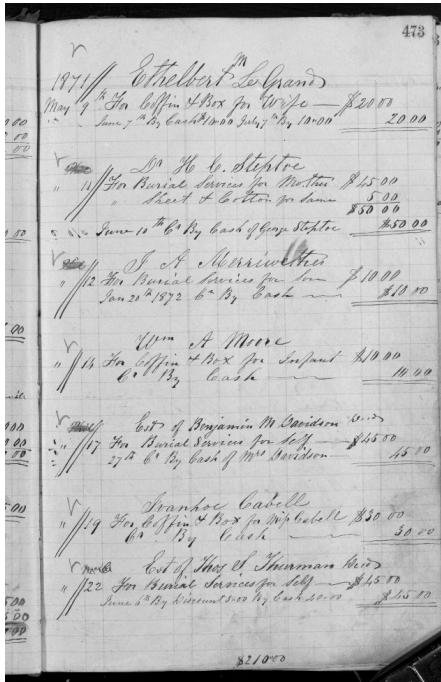 473
1871 Ethelbert M LeGrand
May 9th For Coffin & Box for Wife — $20 00
June 7th By Cash 10.00 July 7th By 10.00 20 00
Dr H. C. Steptoe
" 11 For Burial Services for Mother $45 00
" Sheet & Cotton for Same 5 00
$50 00
June 10th Cr By Cash of George Steptoe $50 00
J A Merriwether
" 12 For Burial Services for Son $10 00
Jan 20th 1872 Cr By Cash — $10 00
Wm A Moore
" 14 For Coffin & Box for Infant $10 00
Cr By Cash — 10 00
Est of Benjamin M. Davidson Decd
" 17 For Burial Services for Self — $45 00
27th Cr By Cash of Mrs Davidson 45 00
Ivanhoe Cabell
" 19 For Coffin & Box for Cabell $30 00
Cr By Cash — 30 00
Est of Thos S Thurman Decd
" 22 For Burial Services for Self — $45 00
June 6th By Discount 5.00 By Cash 40.00 $45 00
$210.00